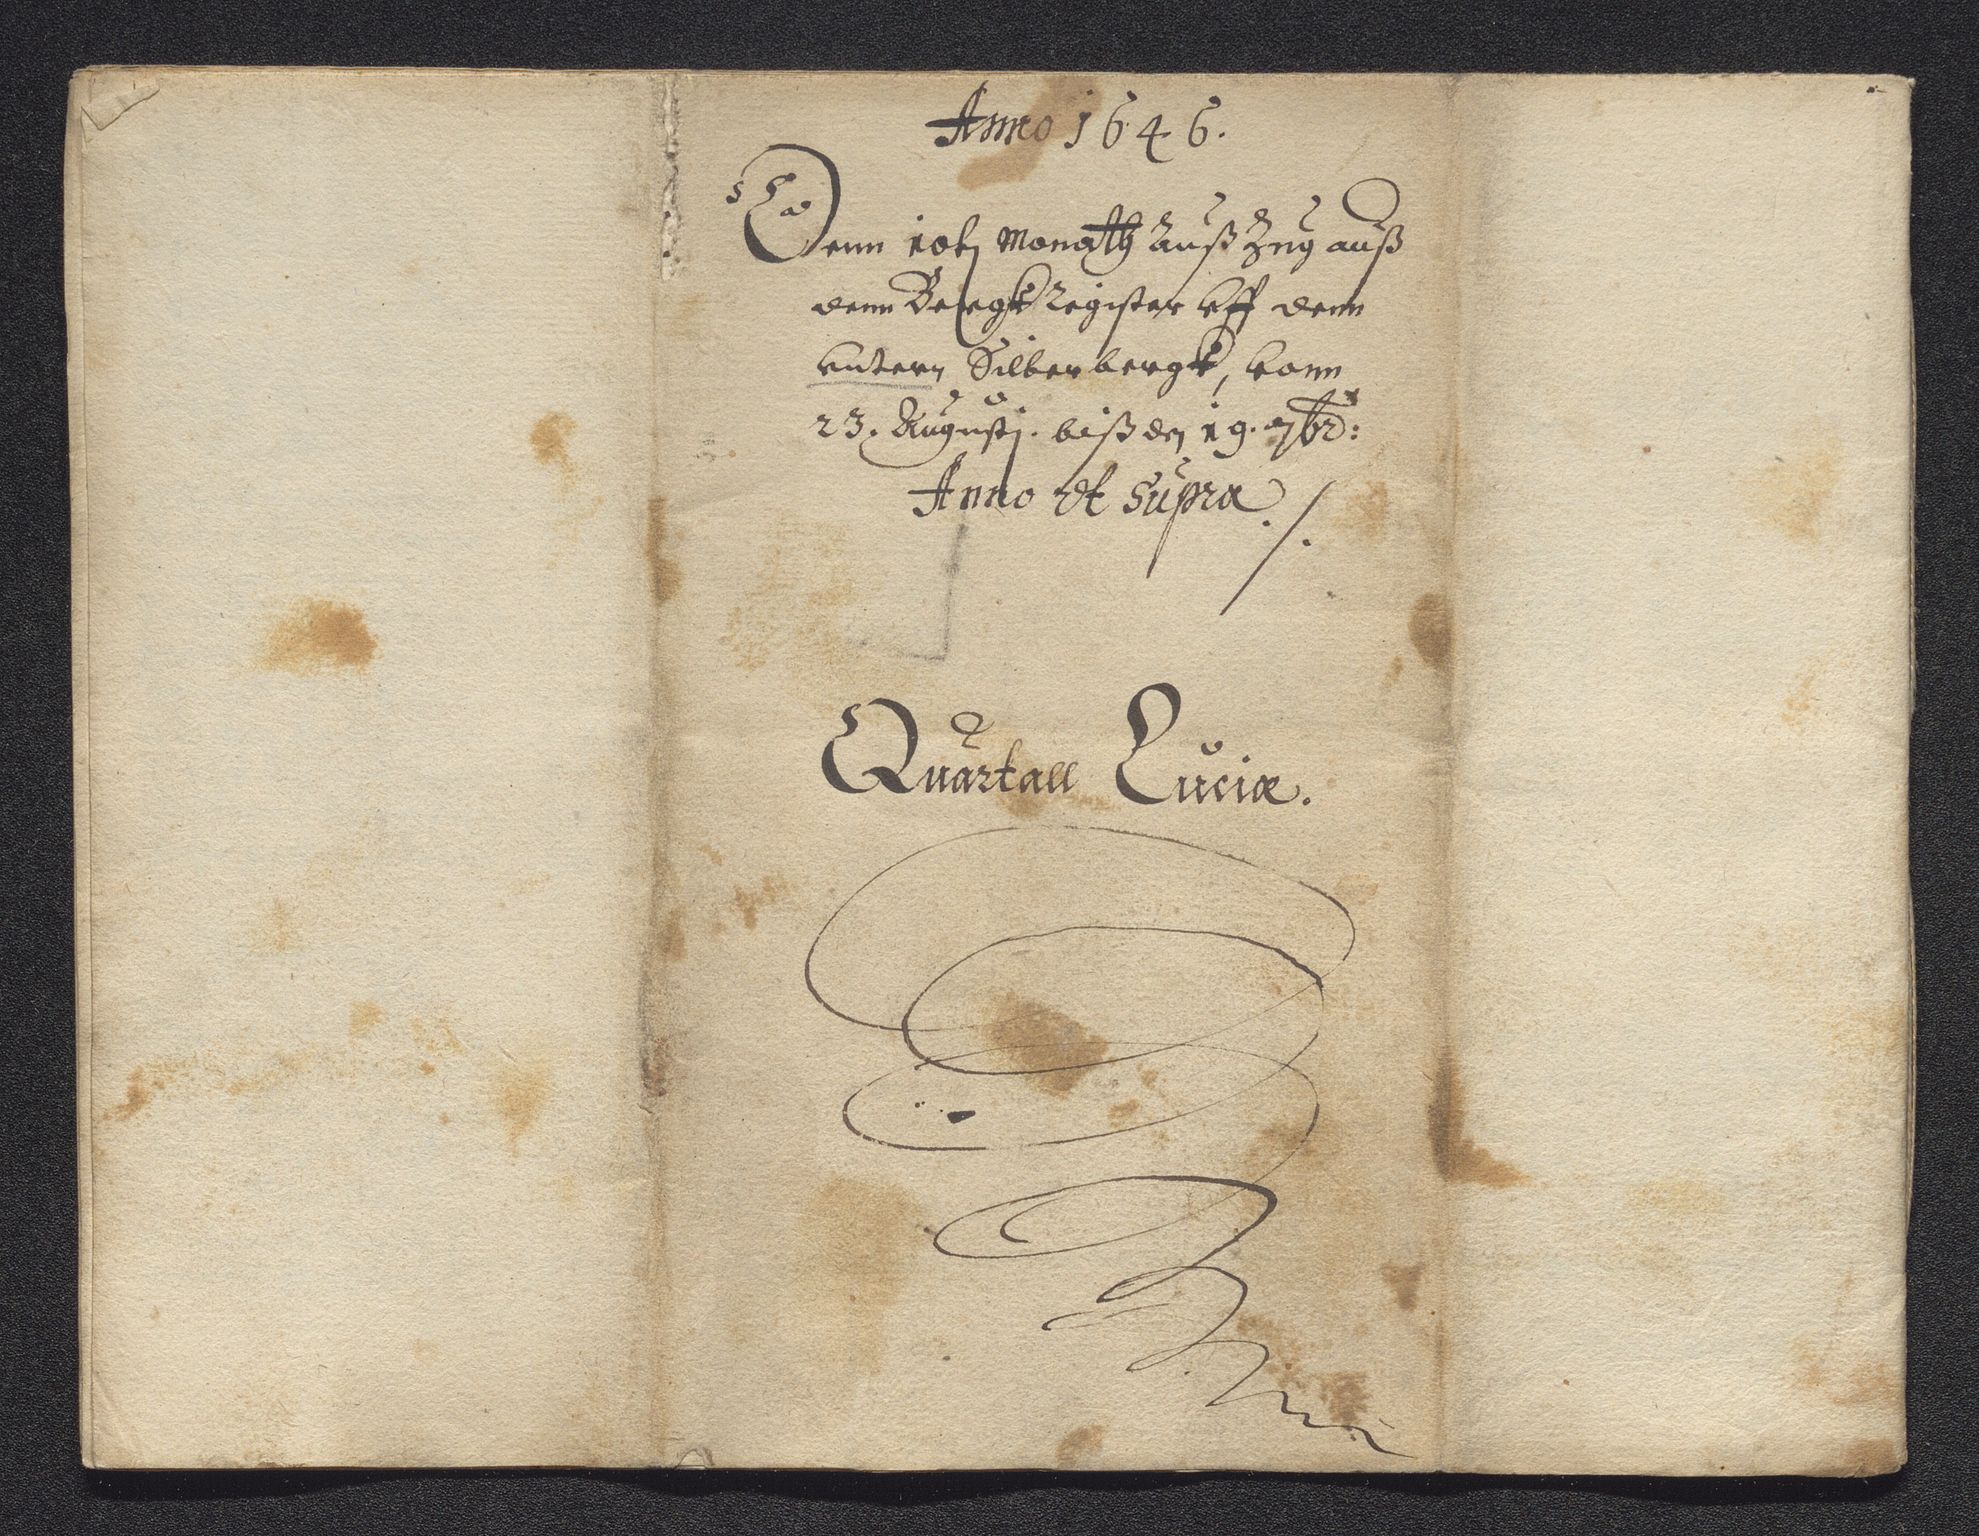 Anno 1646.
Denn 10t Monath Außzug auß
denn Bergk Register vff denn
vntern Silberbergk, vonn
23. Augustj. biß den 19. 7br:
Anno et Supra ./.
Quartall Luciæ.